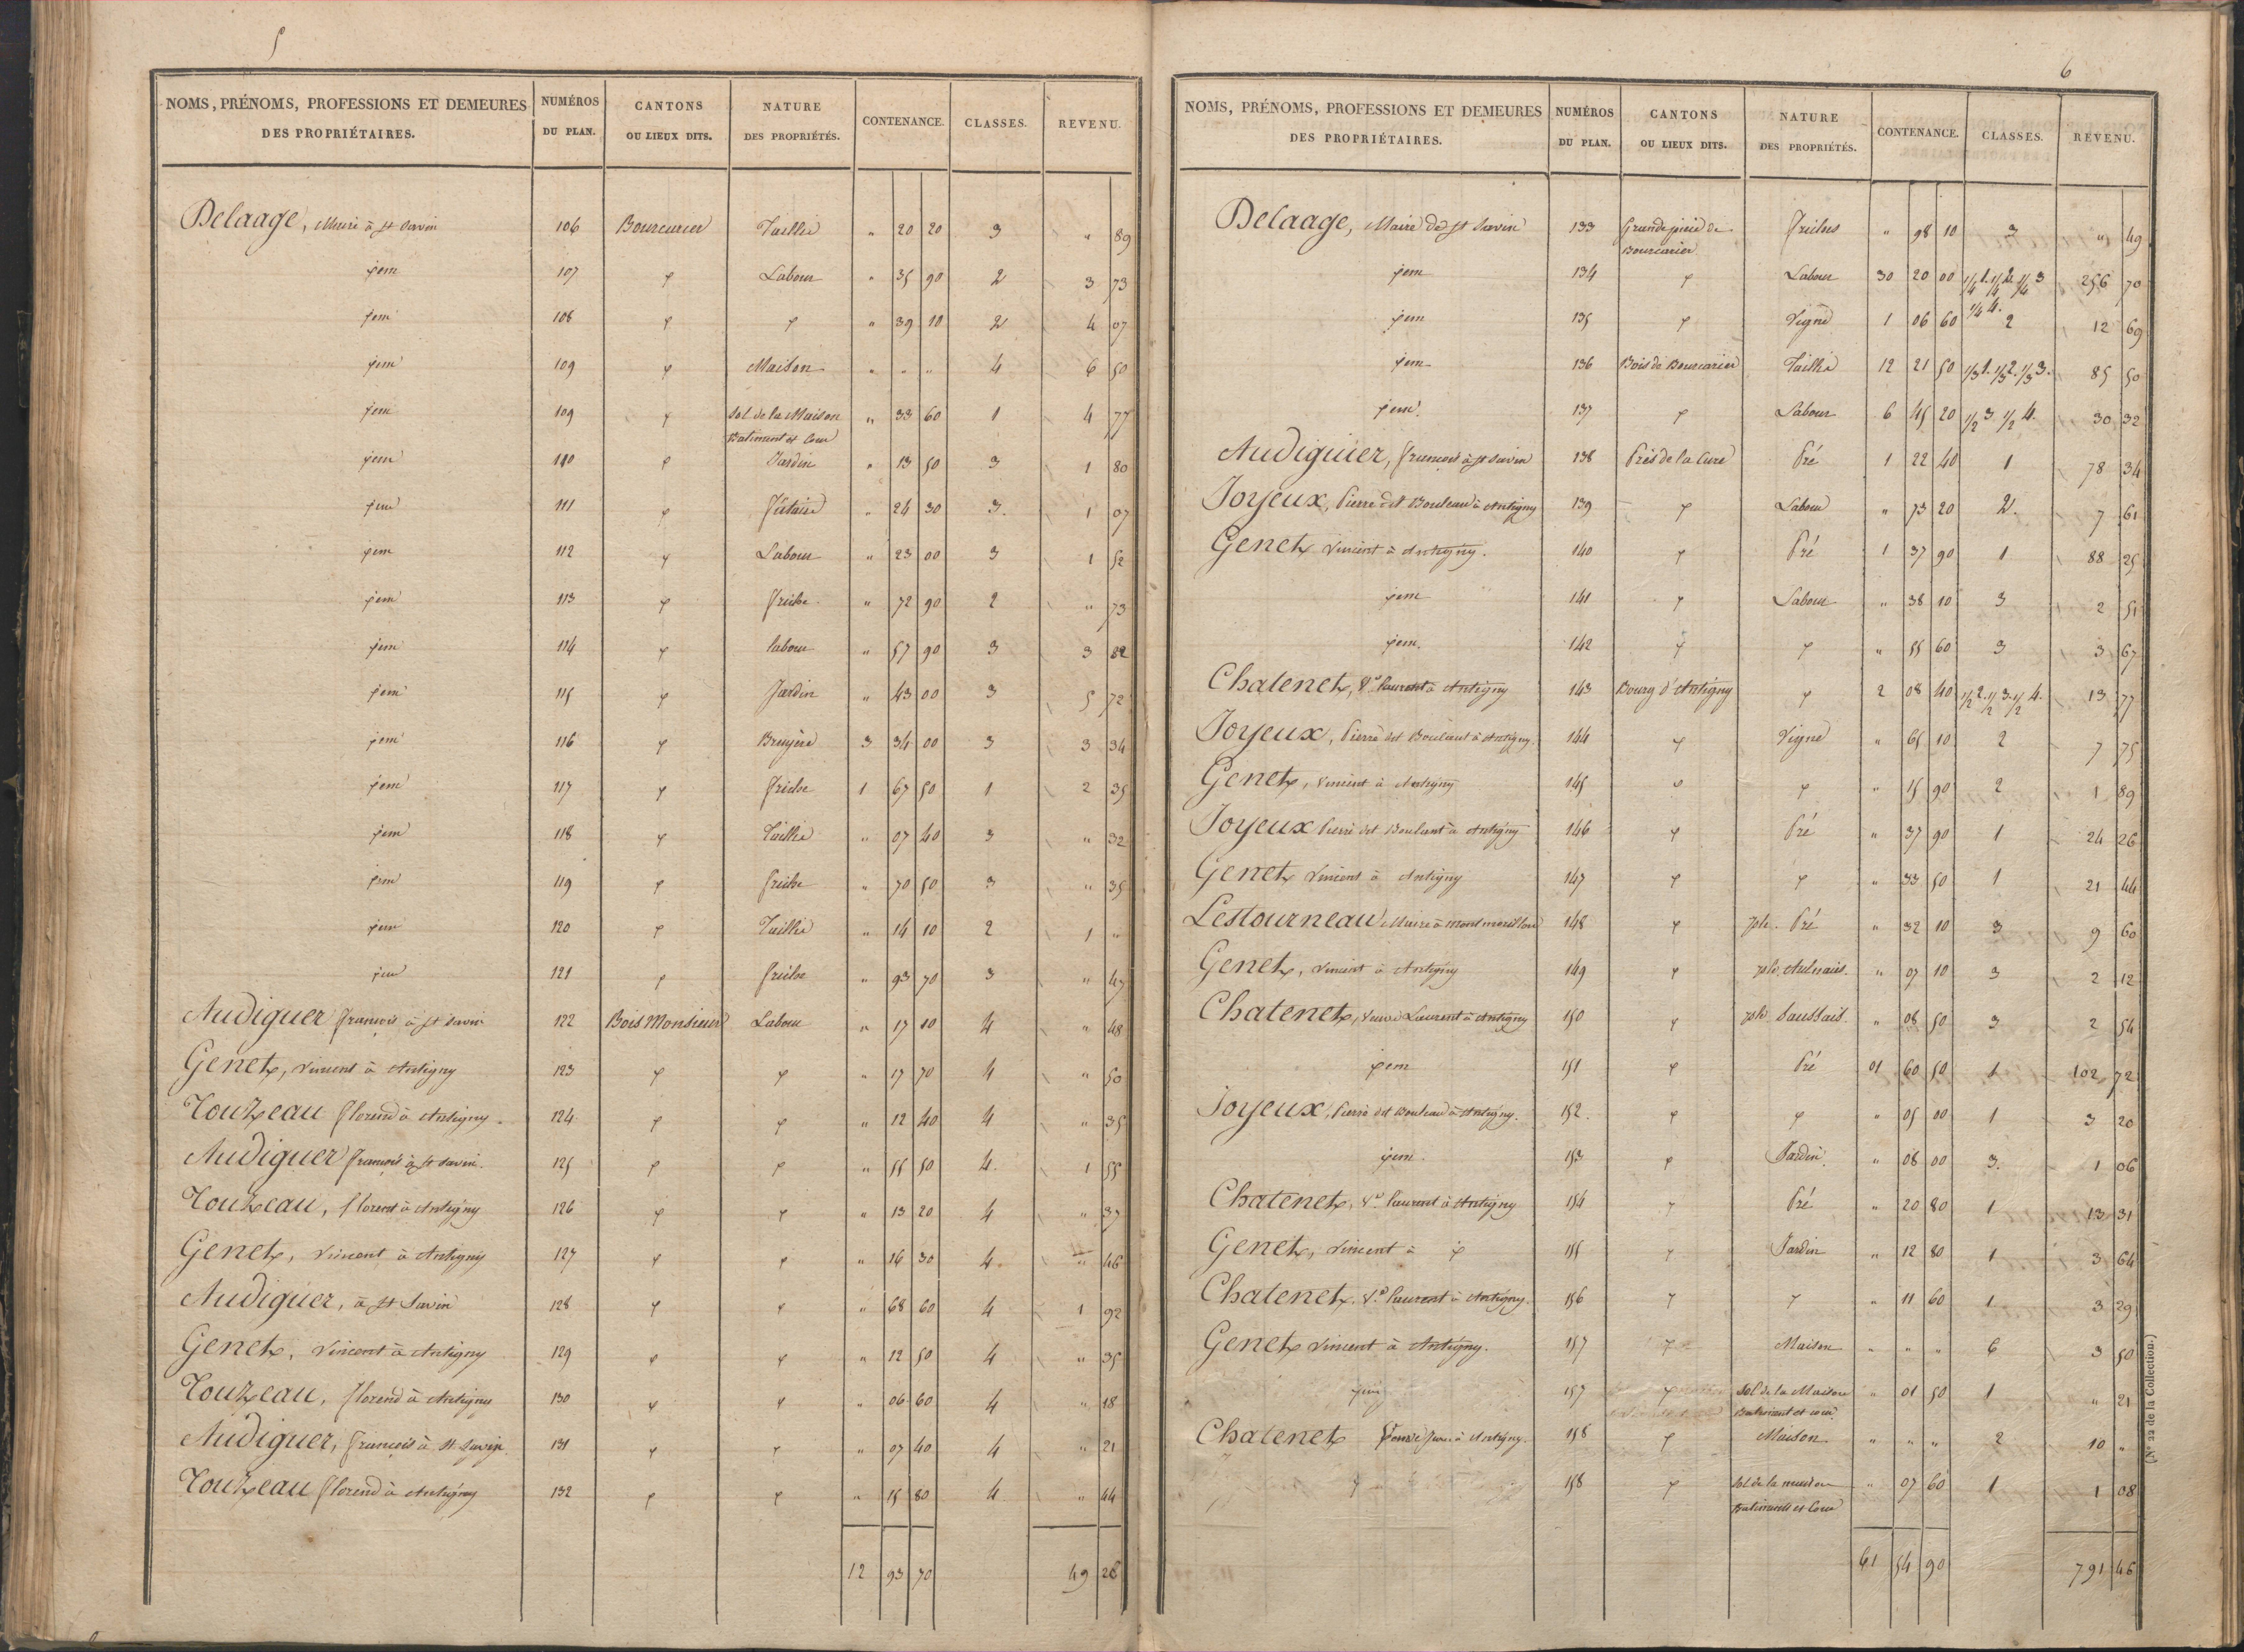 5
NOMS, PRÉNOMS, PROFESSIONS ET DEMEURES DES PROPRIÉTAIRES. NUMÉROS DU PLAN. CANTONS OU LIEUX DITS. NATURE DES PROPRIÉTÉS. CONTENANCE. CLASSES. REVENU.
Delaage, Maire à St Savin 106 Bourcarier Taillis " 20 20 3 " 89
jdem 107 jd Labour " 35 90 2 3 73
jdem 108 jd jd " 39 10 2 4 07
jdem 109 jd Maison " " " 4 6 50
jdem 109 jd Sol de la Maison " 33 60 1 4 77
Batiment et Cour
jdem 110 jd Jardin " 13 50 3 1 80
jdem 111 jd Futaie " 24 30 3. 1 07
jdem 112 jd Labour " 23 00 3 1 52
jdem 113 jd friche " 72 90 2 " 73
jdem 114 jd labour " 57 90 3 3 82
jdem 115 jd Jardin " 43 00 3 5 72
jdem 116 jd Bruyère 3 34 00 3 3 34
jdem 117 jd friche 1 67 50 1 2 35
jdem 118 jd Taillis " 07 40 3 " 32
jdem 119 jd friche " 70 50 3 " 35
jdem 120 jd Taillis " 14 10 2 1 "
jdem 121 jd friche " 93 70 3 " 47
Audiguer françois à St Savin 122 Bois Monsieur Labour " 17 10 4 " 48
Genet, Vincent à Antigny 123 jd jd " 17 70 4 " 50
Touzeau florend à Antigny. 124 jd jd " 12 40 4 " 35
Audiguer françois à St Savin. 125 jd jd " 55 50 4. 1 55
Touzeau, florent à Antigny 126 jd jd " 13 20 4 " 37
Genet, Vincent à Antigny 127 jd jd " 16 30 4. " 46
Audiguer, à St Savin 128 jd jd " 68 60 4 1 92
Genet, Vincent à Antigny 129 jd jd " 12 50 4 " 35
Touzeau, florend à Antigny 130 jd jd " 06 60 4 " 18
Audiguer, françois à St Savin. 131 jd jd " 07 40 4 " 21
Touzeau florend à Antigny 132 jd jd " 15 80 4 " 44
12 93 70 49 26
6
NOMS, PRÉNOMS, PROFESSIONS ET DEMEURES DES PROPRIÉTAIRES. NUMÉROS DU PLAN. CANTONS OU LIEUX DITS. NATURE DES PROPRIÉTÉS. CONTENANCE. CLASSES. REVENU.
Delaage, Maire de St Savin 133 Grande pièce de friches " 98 10 3 " 49
Bourcarier
jdem 134 jd Labour 30 20 00 1/4 1. 1/4 2. 1/4 3 256 70
1/4 4.
jdem 135 jd Vigne 1 06 60 2 12 69
jdem 136 Bois de Bourcarier Taillis 12 21 50 1/3 1. 1/3 2. 1/3 3. 85 50
jdem. 137 jd Labour 6 45 20 1/2 3 1/2 4. 30 32
Audiguier, françois à St Savin 138 Prés de la Cure Pré 1 22 40 1 78 34
Joyeux, Pierre dit Bouleau à Antigny 139 jd Labour " 73 20 2. 7 61
Genet Vincent à Antigny. 140 jd Pré 1 37 90 1 88 25
jdem 141 jd Labour " 38 10 3 2 51
jdem. 142 jd jd " 55 60 3 3 67
Chatenet, Ve laurent à Antigny 143 Bourg d'Antigny jd 2 08 40 1/2 2. 1/2 3. 1/2 4. 13 77
Joyeux, Pierre dit Boulaut à Antigny. 144 jd Vigne " 65 10 2 7 75
Genet, Vincent à Antigny 145 jd jd " 15 90 2 1 89
Joyeux Pierre dit Boulaut à Antigny 146 jd Pré " 37 90 1 24 26
Genet Vincent à Antigny 147 jd jd " 33 50 1 21 44
Lestourneau Maire à Montmorillon 148 jd Pré " 32 10 3 9 60
Genet, Vincent à Antigny 149 jd Aulnais. " 07 10 3 2 12
Chatenet, Veuve Laurent à Antigny 150 jd Saussais. " 08 50 3 2 54
jdem 151 jd Pré 01 60 50 1 102 72
Joyeux, Pierre dit Bouleau à Antigny. 152. jd jd " 05 00 1 3 20
jdem. 153 jd Jardin. " 08 00 3. 1 06
Chatenet, Ve laurent à Antigny 154 jd Pré " 20 80 1 13 31
Genet, Vincent à jd 155 jd Jardin " 12 80 1 3 64
Chatenet. Ve laurent à Antigny. 156 jd jd " 11 60 1 3 29
Genet Vincent à Antigny. 157 jd Maison " " " 6 3 50
jdem 157 jd Sol de la Maison " 01 50 1 " 21
Batiment et cour
Chatenet Veuve à Antigny. 158 jd Maison " " " 2 10 "
jd 158 jd Sol de la maison " 07 60 1 1 08
Batiments et Cour
61 54 90 791 46
(N° 22 de la Collection.)